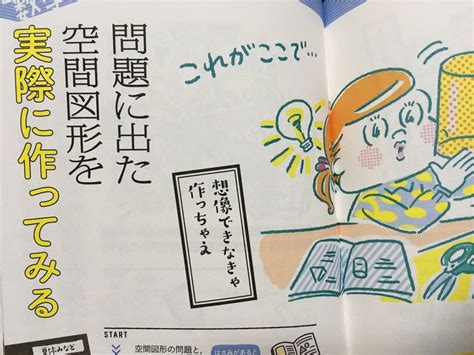 問題に出た
空間図形を
実際に作ってみる
これがここで…
想像できなきゃ
作っちゃえ
夏休みなど
START
空間図形の問題と、
はさみがあると